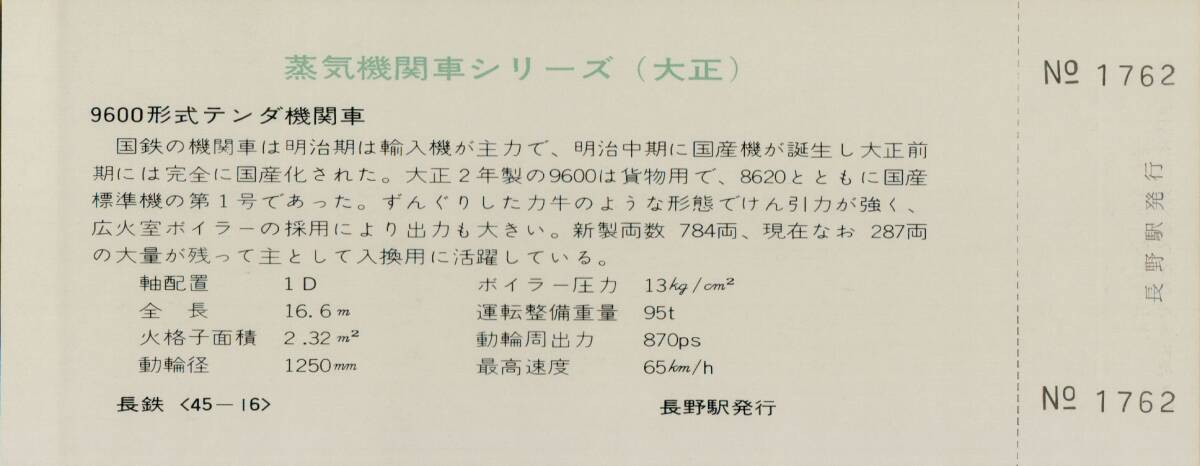 蒸気機関車シリーズ（大正）
9600形式テンダ機関車
国鉄の機関車は明治期は輸入機が主力で、明治中期に国産機が誕生し大正前
期には完全に国産化された。大正2年製の9600は貨物用で、8620とともに国産
標準機の第1号であった。ずんぐりした力牛のような形態でけん引力が強く、
広火室ボイラーの採用により出力も大きい。新製両数 784両、現在なお 287両
の大量が残って主として入換用に活躍している。
軸配置 1D ボイラー圧力 13kg/cm²
全長 16.6m 運転整備重量 95t
火格子面積 2.32m² 動輪周出力 870ps
動輪径 1250mm 最高速度 65km/h
長鉄〈45－16〉 長野駅発行
№ 1762
長野駅発行
№ 1762